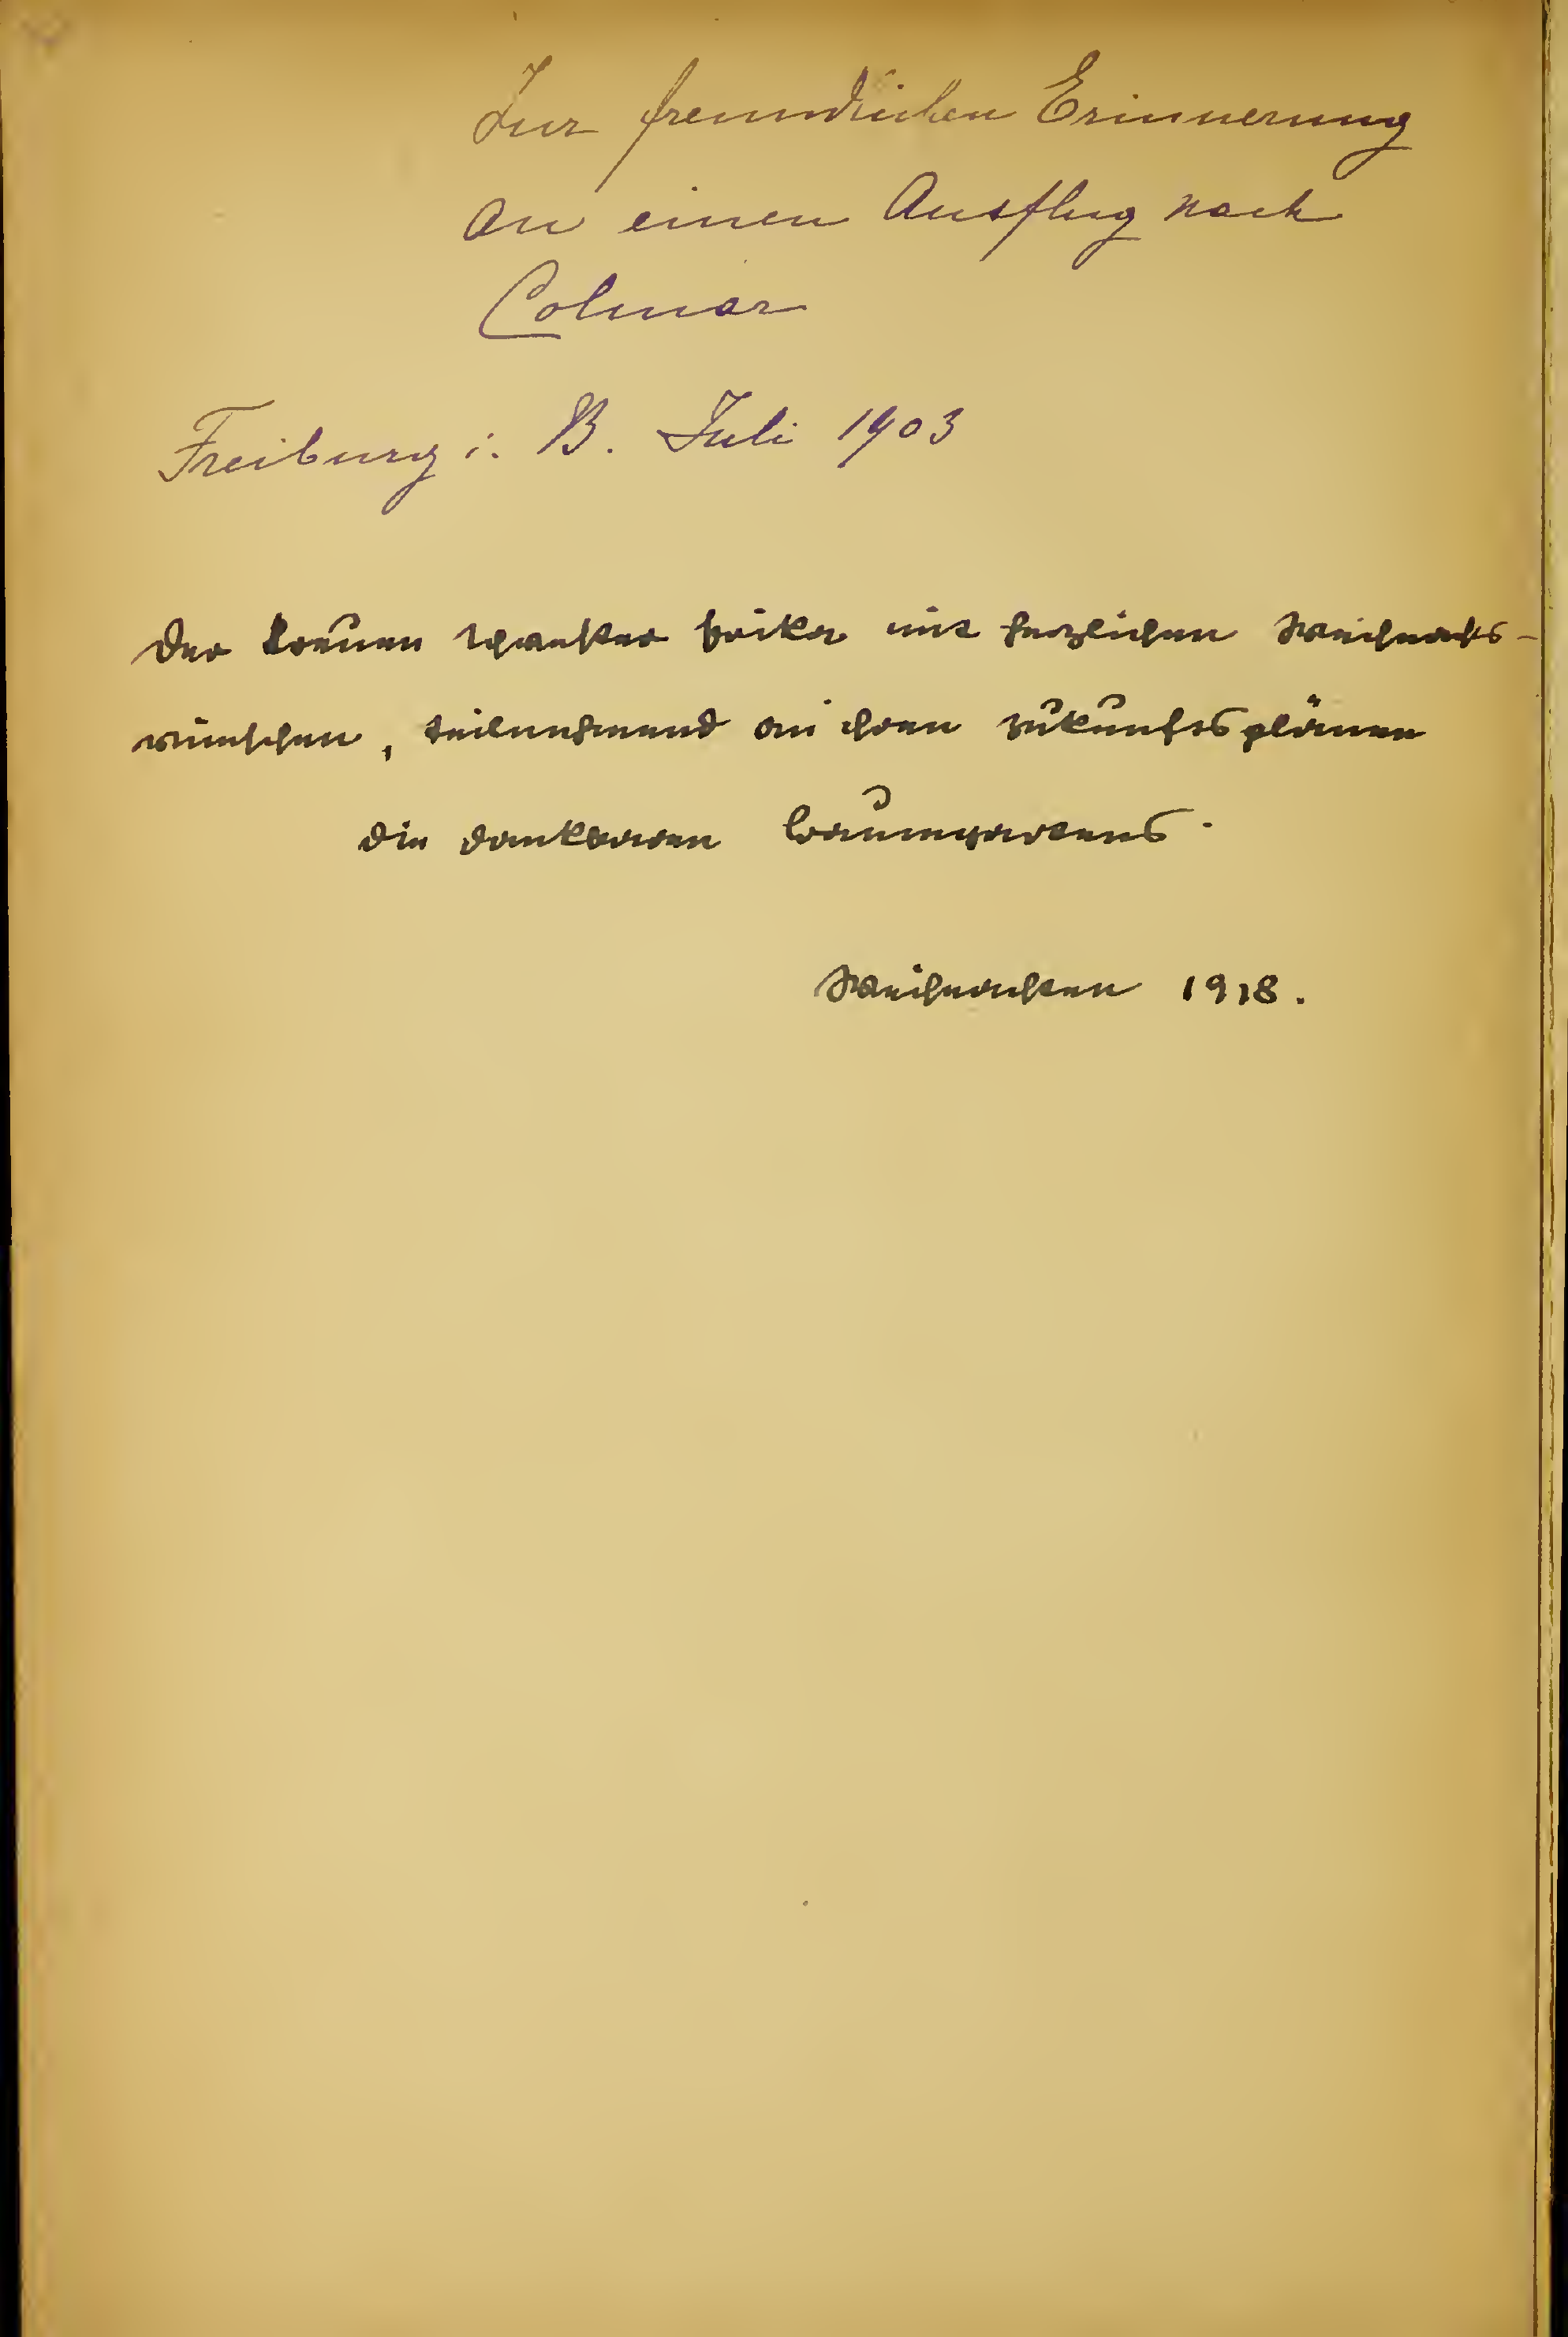 Zur freundlichen Erinnerung
an einen Ausflug nach
Colmar
Freiburg i. B. Juli 1903
Der treuen Schwester mit herzlichen Weihnachts-
wünschen, teilnehmend an ihren Zukunftsplänen
die dankbaren Baumgartens.
Weihnachten 1918.